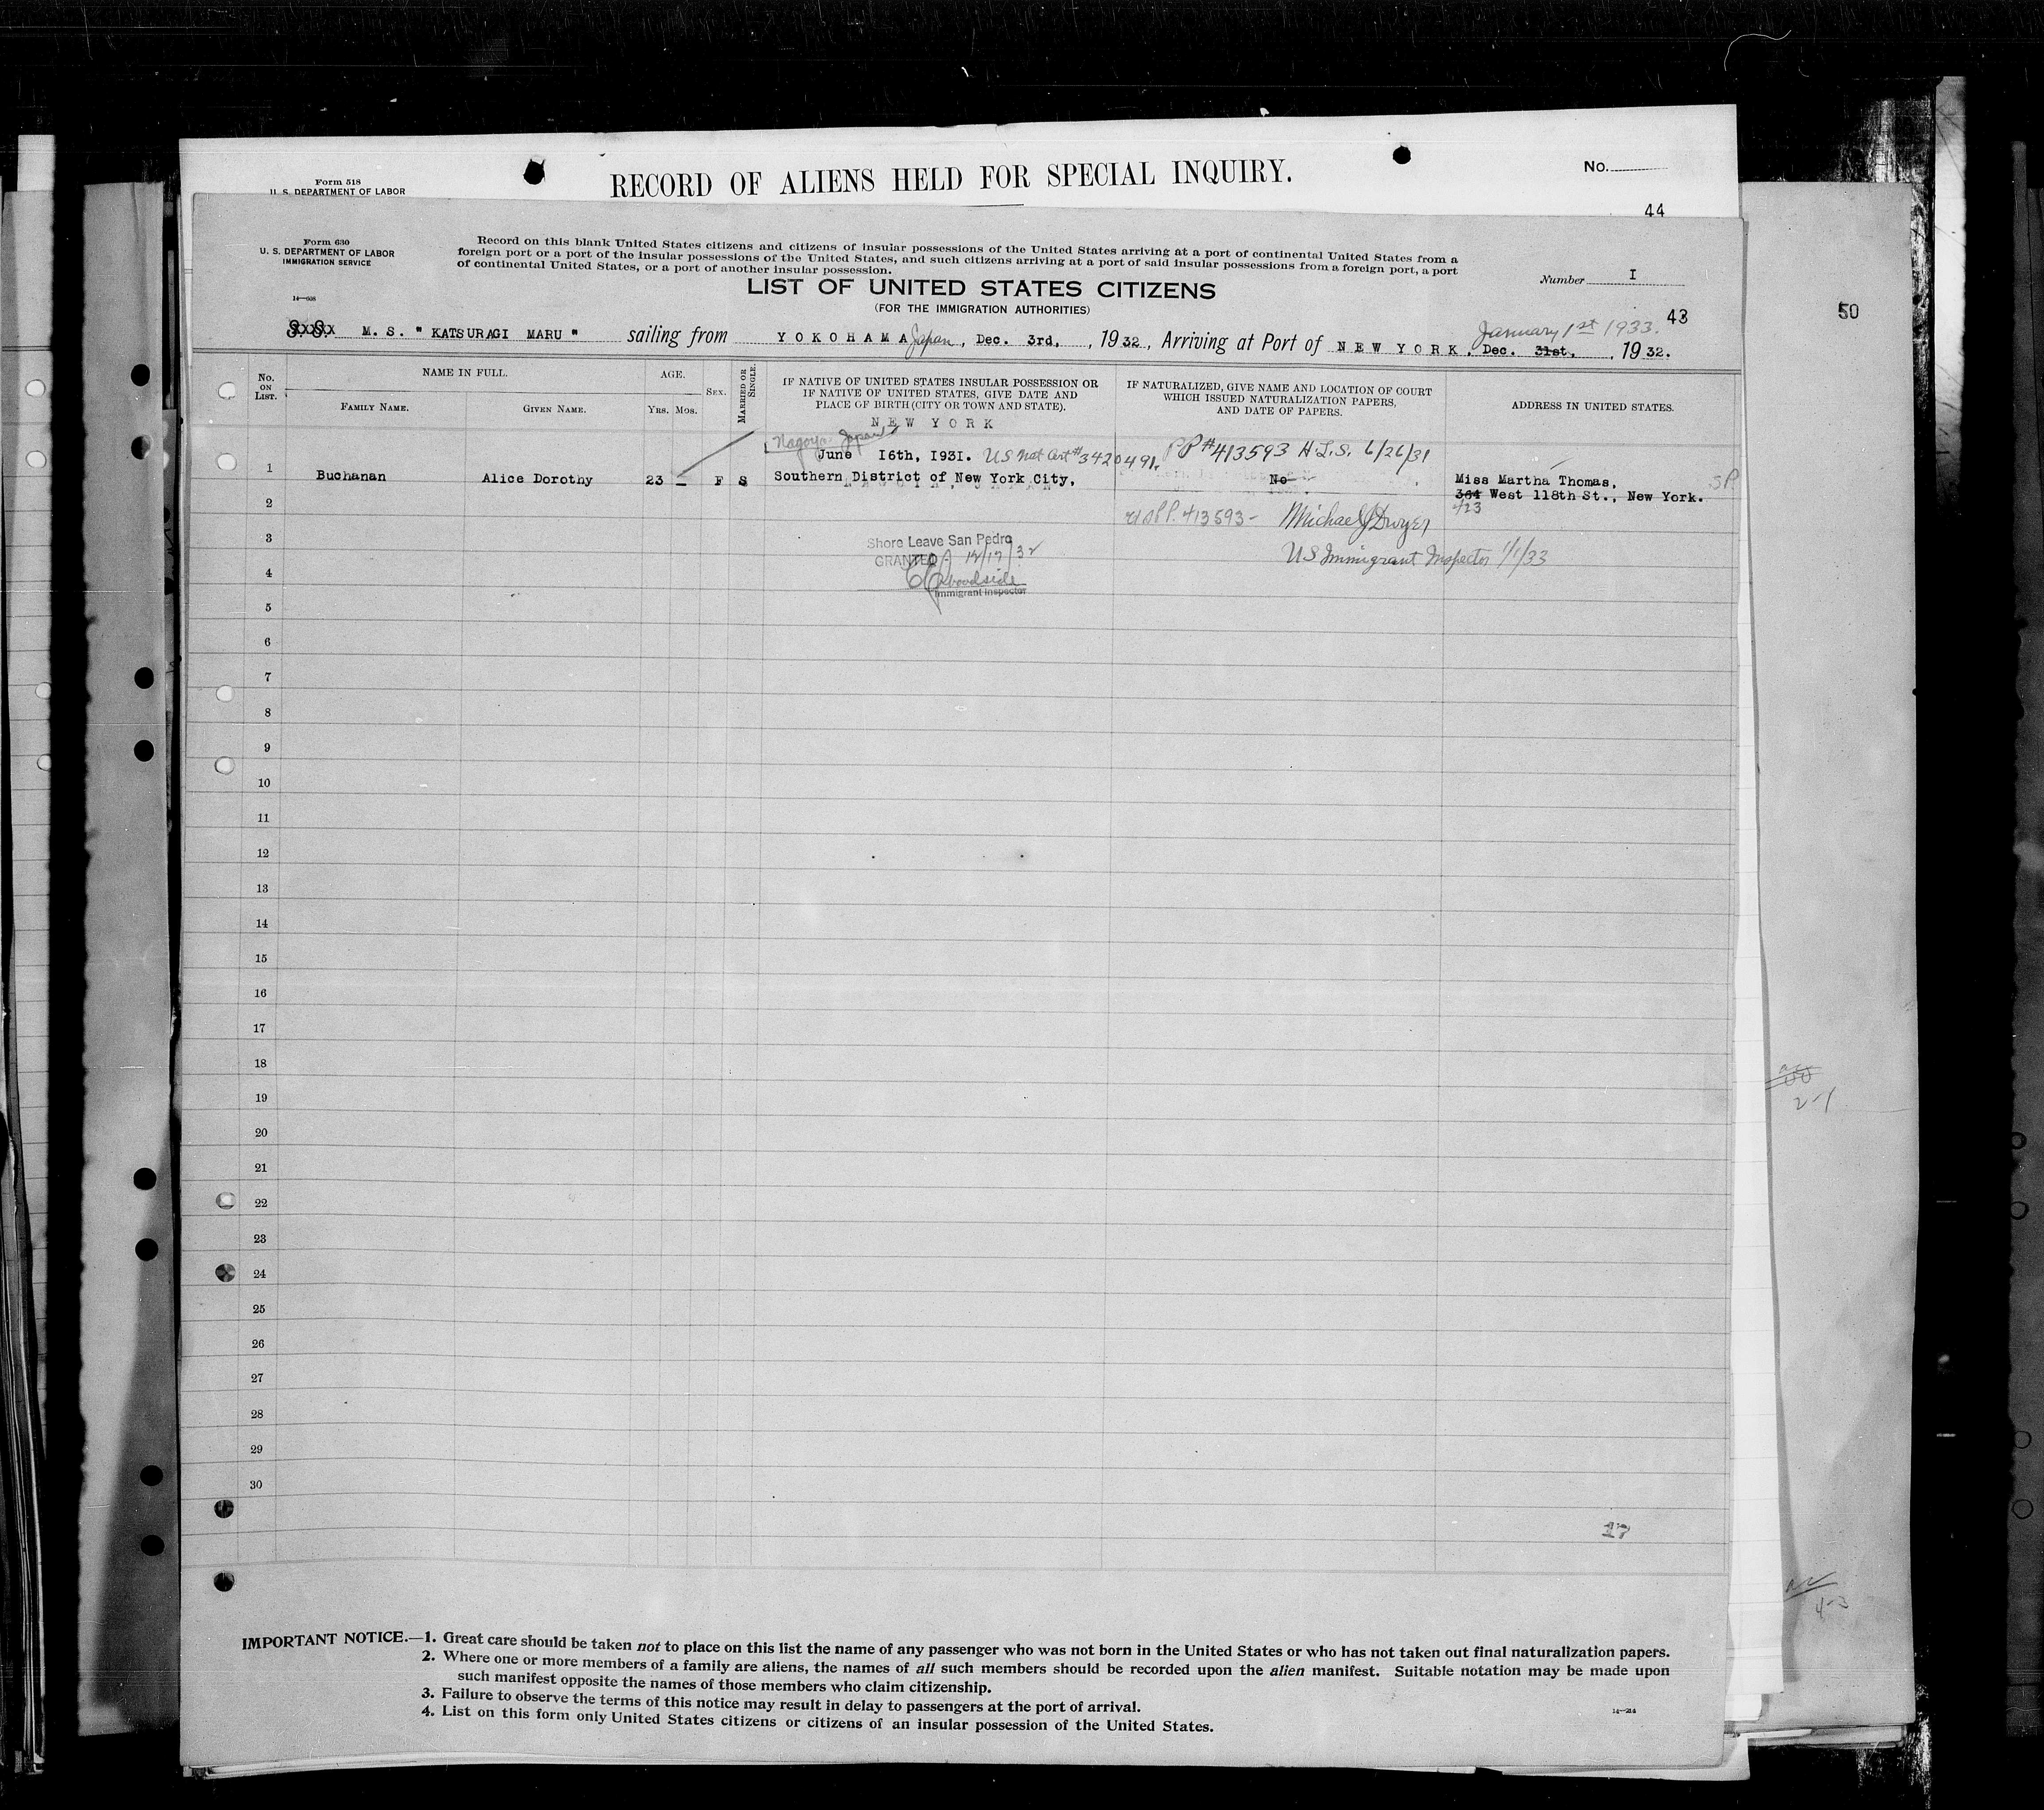 Form 518
U. S. DEPARTMENT OF LABOR
RECORD OF ALIENS HELD FOR SPECIAL INQUIRY.
No.
44
Form 630
U. S. DEPARTMENT OF LABOR
IMMIGRATION SERVICE
14—608
Record on this blank United States citizens and citizens of insular possessions of the United States arriving at a port of continental United States from a
foreign port or a port of the insular possessions of the United States, and such citizens arriving at a port of said insular possessions from a foreign port, a port
of continental United States, or a port of another insular possession.
LIST OF UNITED STATES CITIZENS
(FOR THE IMMIGRATION AUTHORITIES)
Number I
43
50
January 1st 1933.
S. S. M. S. " KATSURAGI MARU " sailing from YOKOHAMA Japan, Dec. 3rd, , 1932, Arriving at Port of NEW YORK, Dec. 31st, , 1932.
No. ON LIST.
NAME IN FULL.
FAMILY NAME.
GIVEN NAME.
AGE.
YRS. MOS.
SEX.
MARRIED OR SINGLE.
IF NATIVE OF UNITED STATES INSULAR POSSESSION OR
IF NATIVE OF UNITED STATES, GIVE DATE AND
PLACE OF BIRTH (CITY OR TOWN AND STATE).
IF NATURALIZED, GIVE NAME AND LOCATION OF COURT
WHICH ISSUED NATURALIZATION PAPERS,
AND DATE OF PAPERS.
ADDRESS IN UNITED STATES.
NEW YORK
Nagoya Japan
June 16th, 1931. US Nat Cert #3420491. PP #413593 H.L.S. 6/26/31
1 Buchanan Alice Dorothy 23 — F S Southern District of New York City, No Miss Martha Thomas, SP
364 West 118th St., New York.
423
2
US PP. 413593 - Michael J Dwyer
US Immigrant Inspector 1/1/33
3
Shore Leave San Pedro
GRANTED 12/17/32
4
Woodside
Immigrant Inspector
5
6
7
8
9
10
11
12
13
14
15
16
17
18
19
20
21
22
23
24
25
26
27
28
29
30
17
2-1
4-3
IMPORTANT NOTICE.—1. Great care should be taken not to place on this list the name of any passenger who was not born in the United States or who has not taken out final naturalization papers.
2. Where one or more members of a family are aliens, the names of all such members should be recorded upon the alien manifest. Suitable notation may be made upon
such manifest opposite the names of those members who claim citizenship.
3. Failure to observe the terms of this notice may result in delay to passengers at the port of arrival.
4. List on this form only United States citizens or citizens of an insular possession of the United States.
14—214